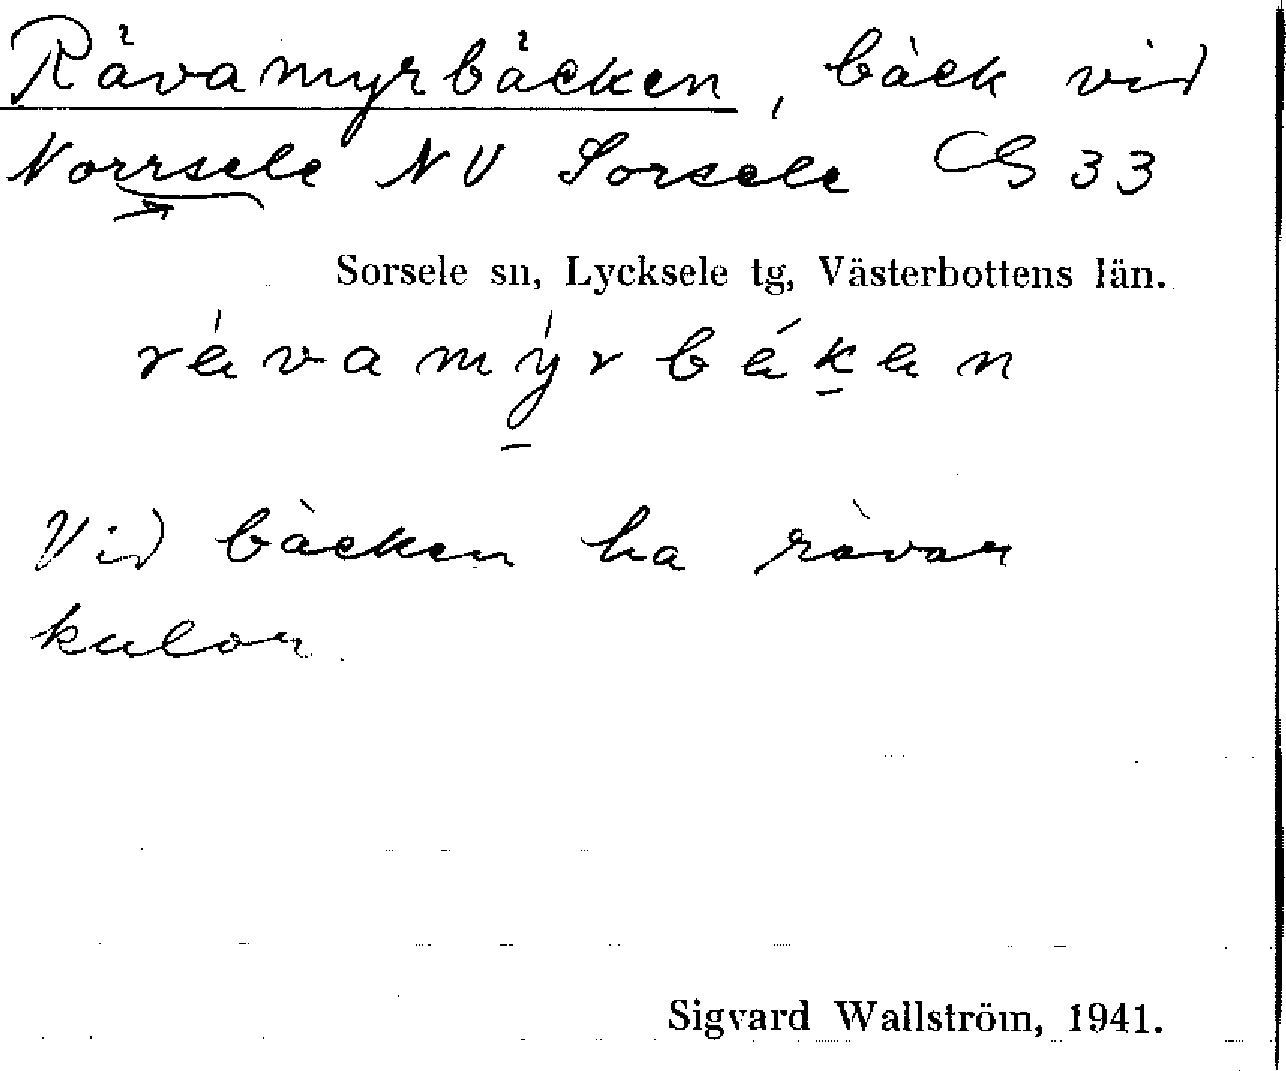 Rävamyrbäcken, bäck vid
Norrsele NV Sorsele CG 33
Sorsele sn, Lycksele tg, Västerbottens län.
rávamýrbákan
Vid bäcken ha rävar
kulor.
Sigvard Wallström, 1941.